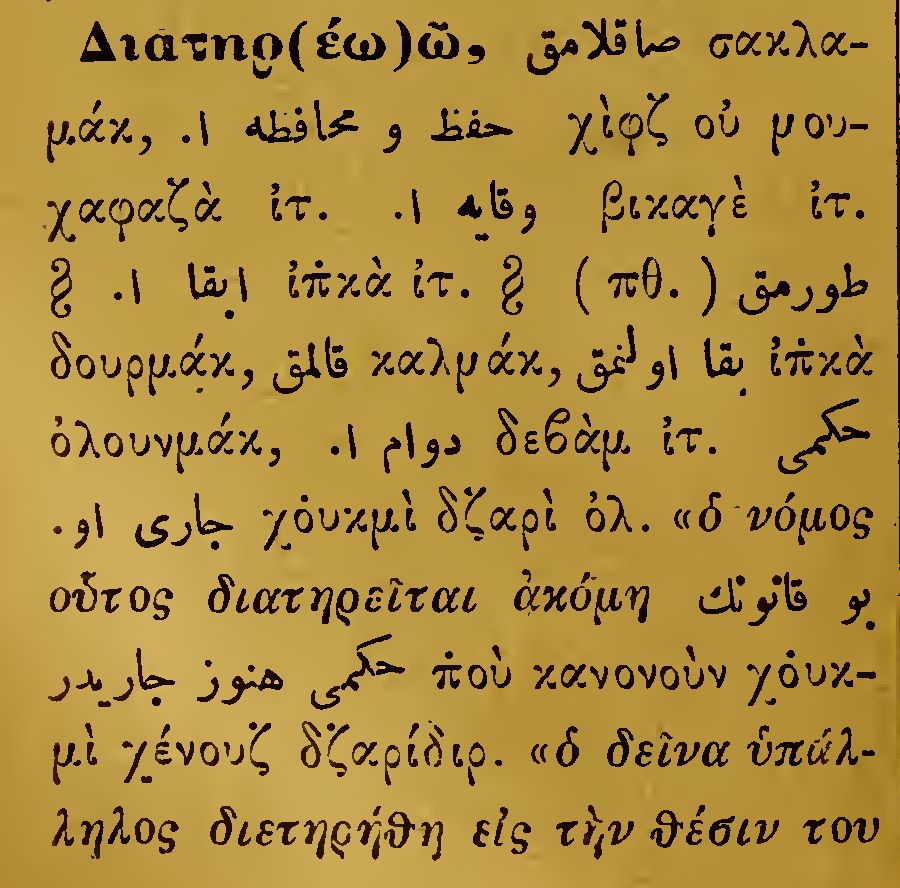 Διατηρ(έω)ῶ, صاقلامق σακλα-
μάκ, حفظ و محافظه ا. χὶφζ οὐ μου-
χαφαζὰ ἰτ. وقایه ا. βικαγὲ ἰτ.
§ ابقا ا. ἰπ̇κὰ ἰτ. § (πθ.) طورمق
δουρμάκ, قالمق καλμάκ, بقا اولنمق ἰπ̇κὰ
ὀλουνμάκ, دوام ا. δεβὰμ ἰτ. حکمی
جاری او. χὀυκμὶ δζ̇αρὶ ὀλ. «ὁ νόμος
οὗτος διατηρεῖται ἀκόμη بو قانونك
حکمی هنوز جاریدر π̇οὺ κανονοὺν χὀυκ-
μὶ χένουζ δζ̇αρίδιρ. «ὁ δεῖνα ὑπάλ-
ληλος διετηρήθη εἰς τὴν θέσιν του